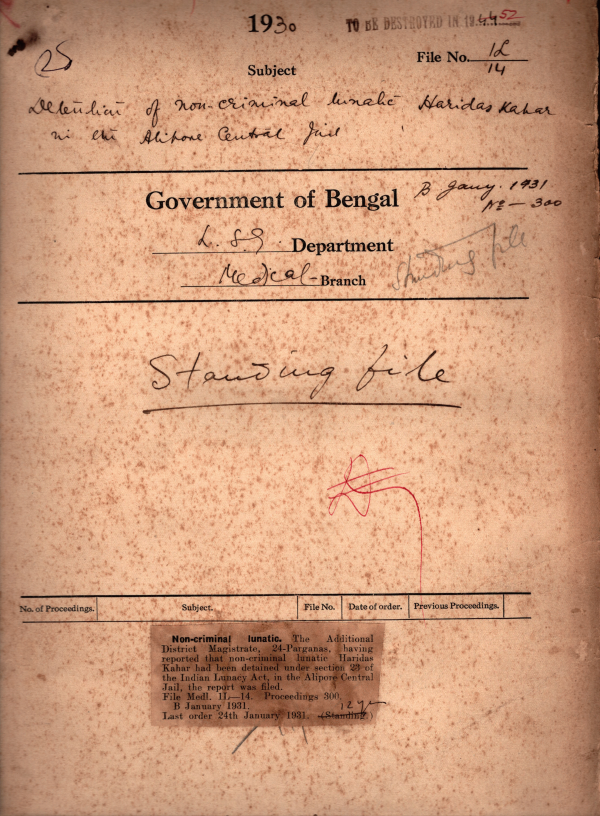 1930
TO BE DESTROYED IN 19
52
25
File No. 1L
14
Subject
Detention of non-criminal lunatic Haridas Kahar
in the Alipore Central Jail
Government of Bengal
B Jany. 1931
No — 300
L. S. G. Department
Medical Branch
Standing file
Standing file
No. of Proceedings.
Subject.
File No.
Date of order.
Previous Proceedings.
Non-criminal lunatic. The Additional
District Magistrate, 24-Parganas, having
reported that non-criminal lunatic Haridas
Kahar had been detained under section 23 of
the Indian Lunacy Act, in the Alipore Central
Jail, the report was filed.
File Medl. 1L—14. Proceedings 300,
B January 1931.
Last order 24th January 1931. (Standing.)